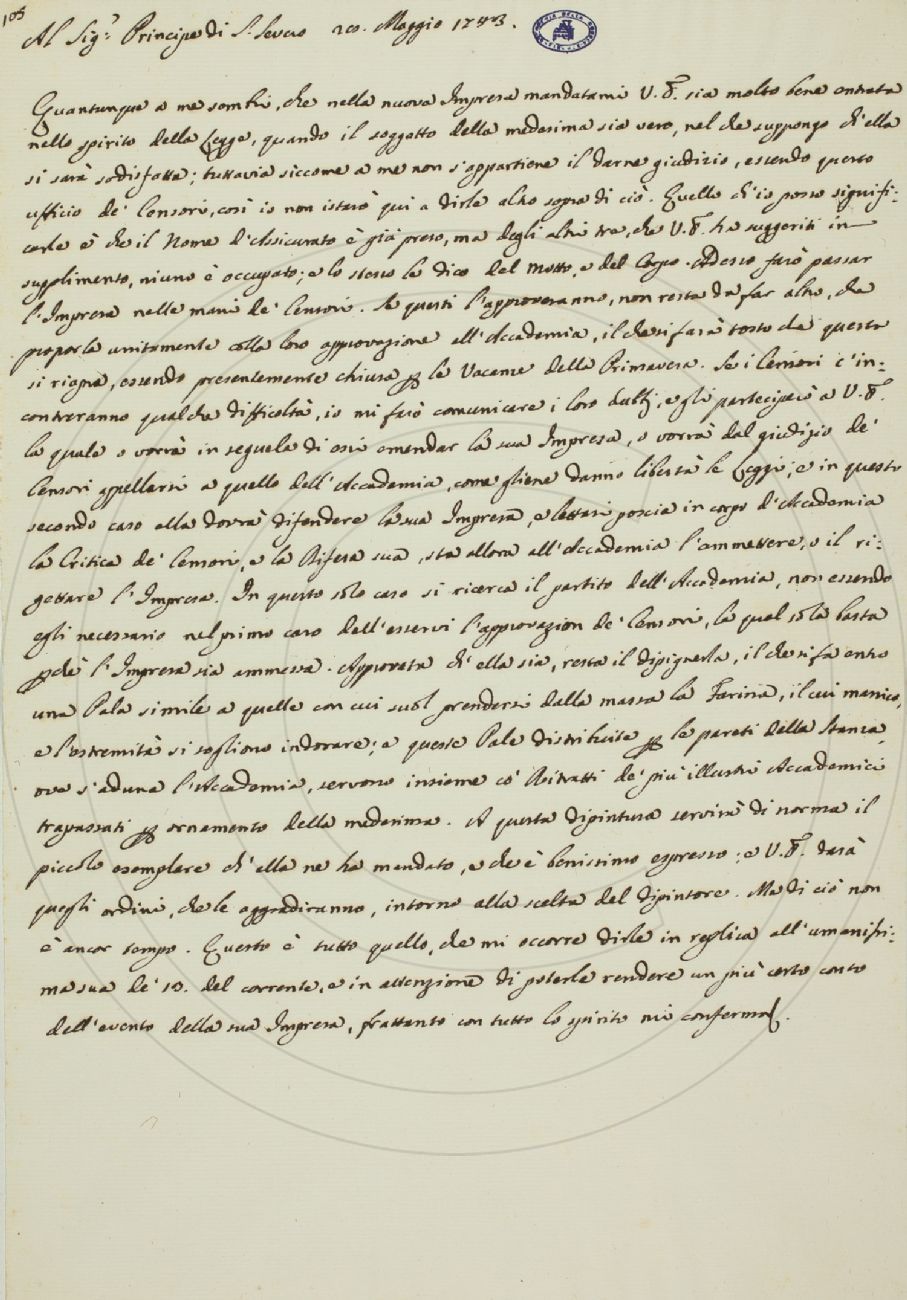 105
Al Sig.r Principe di S. Severo 20. Maggio 1743.
Quantunque a me sembri, che nella nuova Impresa mandatami V. E. sia molto bene entrata
nello spirito della Legge, quando il soggetto della medesima sia vero, nel che suppongo ch'ella
si sarà sodisfatta; tuttavia siccome a me non s'appartiene il darne giudizio, essendo questo
ufficio de' Censori, così io non istarò qui a dirle altro sopra di ciò. Quello ch'io posso signifi:
carle è che il Nome d'Assicurato è già preso, ma degli altri tre, che V. E. ha suggeriti in
supplimento, niuno è occupato; e lo stesso le dico del Motto, e del Corpo. Adesso farò passar
l'Impresa nelle mani de' Censori. Se questi l'approveranno, non resta da far altro, che
proporla unitamente colla loro approvazione all'Accademia, il che si farà tosto che questa
si riapra, essendo presentemente chiusa p le Vacanze della Primavera. Se i Censori c'in:
contreranno qualche difficoltà, io mi farò comunicare i loro dubbj, e gli parteciperò a V. E.
la quale o vorrà in seguela di essi emendar la sua Impresa, o vorrà dal giudizio de'
Censori appellarsi a quello dell'Accademia, come gliene danno libertà le Leggi; e in questo
secondo caso ella dovrà difendere la sua Impresa, e lettasi poscia in corpo d'Accademia
la Critica de' Censori, e la Difesa sua, sta allora all'Accademia l'ammettere, o il ri:
gettare l'Impresa. In questo solo caso si ricerca il partito dell'Accademia, non essendo
egli necessario nel primo caso dell'esservi l'approvazion de' Censori, la qual sola basta
pchè l'Impresa sia ammessa. Approvata ch'ella sia, resta il dipignerla, il che si fa entro
una Pala simile a quelle con cui suol prendersi dalla massa la Farina, il cui manico,
e l'estremità si sogliono indorare; e queste Pale distribuite p le pareti della Stanza,
ove s'aduna l'Accademia, servono insieme co' Ritratti de' più illustri Accademici
trapassati p ornamento della medesima. A questa dipintura servirà di norma il
piccolo esemplare ch'ella ne ha mandato, e che è benissimo espresso; e V. E. darà
quegli ordini, che le aggradiranno, intorno alla scelta del dipintore. Ma di ciò non
è ancor tempo. Questo è tutto quello, che mi occorre dirle in replica all'umanissi:
ma sua de' 10. del corrente, e in attenzione di poterle rendere un più certo conto
dell'evento della sua Impresa, frattanto con tutto lo spirito mi confermo.